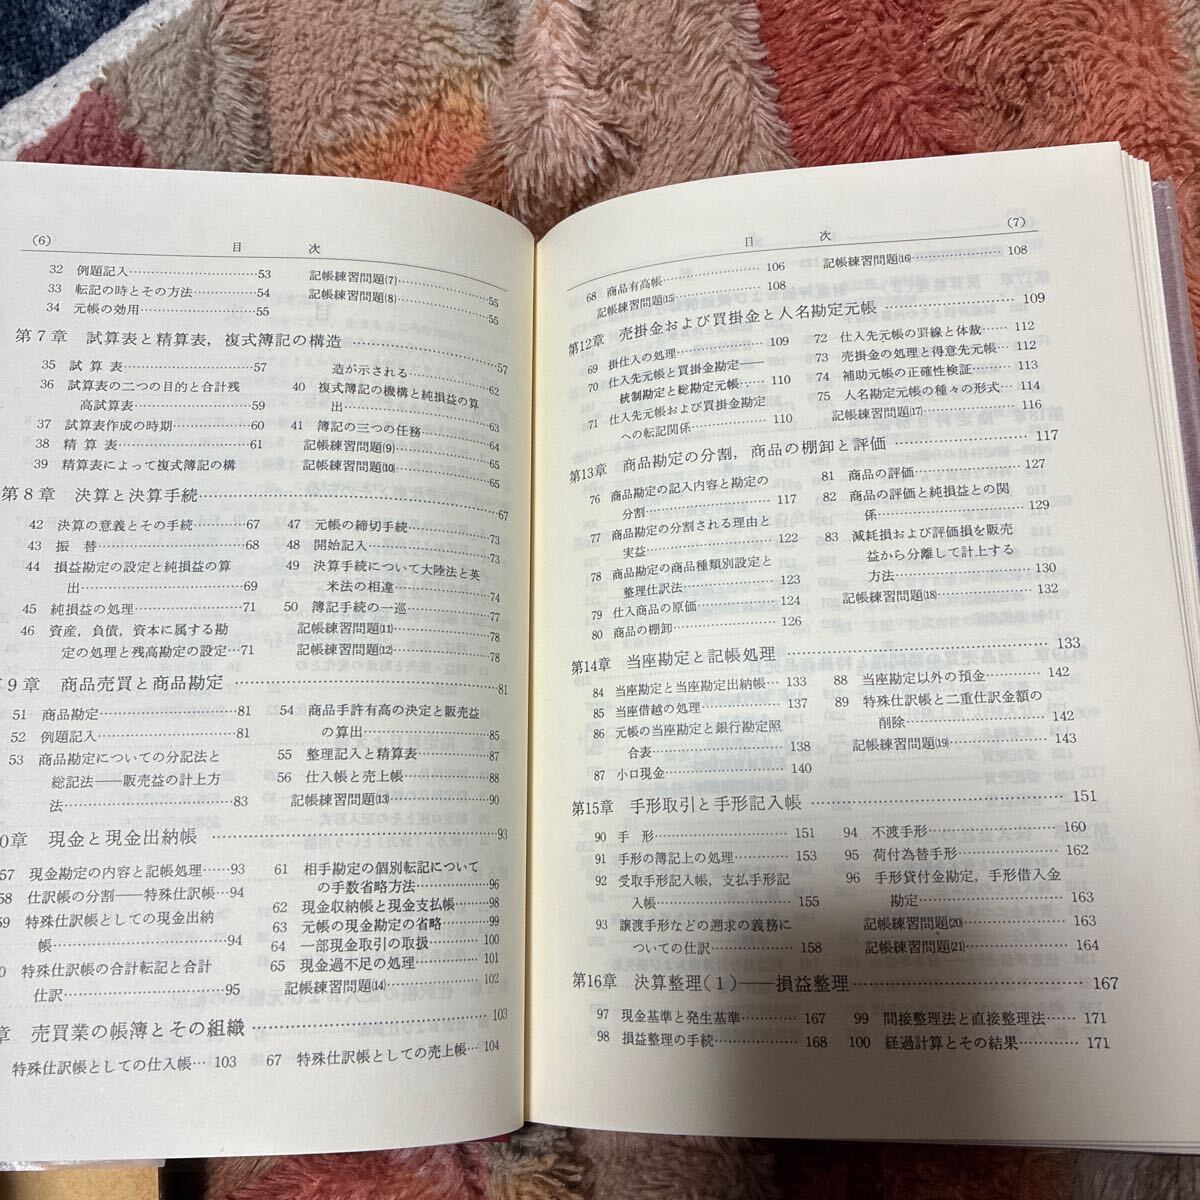 (6)
目　次
32 例題記入……53
33 転記の時とその方法……54
34 元帳の効用……55
記帳練習問題(7)……55
記帳練習問題(8)……55
第7章 試算表と精算表，複式簿記の構造……57
35 試算表……57
36 試算表の二つの目的と合計残
高試算表……59
37 試算表作成の時期……60
38 精算表……61
39 精算表によって複式簿記の構
造が示される……62
40 複式簿記の機構と純損益の算
出……63
41 簿記の三つの任務……64
記帳練習問題(9)……65
記帳練習問題(10)……65
第8章 決算と決算手続……67
42 決算の意義とその手続……67
43 振替……68
44 損益勘定の設定と純損益の算
出……69
45 純損益の処理……71
46 資産，負債，資本に属する勘
定の処理と残高勘定の設定…71
47 元帳の締切手続……73
48 開始記入……73
49 決算手続について大陸法と英
米法の相違……74
50 簿記手続の一巡……77
記帳練習問題(11)……78
記帳練習問題(12)……78
9章 商品売買と商品勘定……81
51 商品勘定……81
52 例題記入……81
53 商品勘定についての分記法と
総記法――販売益の計上方
法……83
54 商品手許有高の決定と販売益
の算出……85
55 整理記入と精算表……87
56 仕入帳と売上帳……88
記帳練習問題(13)……90
0章 現金と現金出納帳……93
57 現金勘定の内容と記帳処理……93
58 仕訳帳の分割――特殊仕訳帳…94
59 特殊仕訳帳としての現金出納
帳……94
0 特殊仕訳帳の合計転記と合計
仕訳……95
61 相手勘定の個別転記について
の手数省略方法……96
62 現金収納帳と現金支払帳……98
63 元帳の現金勘定の省略……99
64 一部現金取引の取扱……100
65 現金過不足の処理……101
記帳練習問題(14)……102
章 売買業の帳簿とその組織……103
特殊仕訳帳としての仕入帳…103
67 特殊仕訳帳としての売上帳…104
(7)
目　次
68 商品有高帳……106
記帳練習問題(15)……108
記帳練習問題(16)……108
第12章 売掛金および買掛金と人名勘定元帳……109
69 掛仕入の処理……109
70 仕入先元帳と買掛金勘定――
統制勘定と総勘定元帳……110
71 仕入先元帳および買掛金勘定
への転記関係……110
72 仕入先元帳の罫線と体裁……112
73 売掛金の処理と得意先元帳……112
74 補助元帳の正確性検証……113
75 人名勘定元帳の種々の形式…114
記帳練習問題(17)……116
第13章 商品勘定の分割，商品の棚卸と評価……117
76 商品勘定の記入内容と勘定の
分割……117
77 商品勘定の分割される理由と
実益……122
78 商品勘定の商品種類別設定と
整理仕訳法……123
79 仕入商品の原価……124
80 商品の棚卸……126
81 商品の評価……127
82 商品の評価と純損益との関
係……129
83 減耗損および評価損を販売
益から分離して計上する
方法……130
記帳練習問題(18)……132
第14章 当座勘定と記帳処理……133
84 当座勘定と当座勘定出納帳…133
85 当座借越の処理……137
86 元帳の当座勘定と銀行勘定照
合表……138
87 小口現金……140
88 当座勘定以外の預金……142
89 特殊仕訳帳と二重仕訳金額の
削除……142
記帳練習問題(19)……143
第15章 手形取引と手形記入帳……151
90 手形……151
91 手形の簿記上の処理……153
92 受取手形記入帳，支払手形記
入帳……155
93 譲渡手形などの遡求の義務に
ついての仕訳……158
94 不渡手形……160
95 荷付為替手形……162
96 手形貸付金勘定，手形借入金
勘定……163
記帳練習問題(20)……163
記帳練習問題(21)……164
第16章 決算整理(1)――損益整理……167
97 現金基準と発生基準……167
98 損益整理の手続……168
99 間接整理法と直接整理法……171
100 経過計算とその結果……171